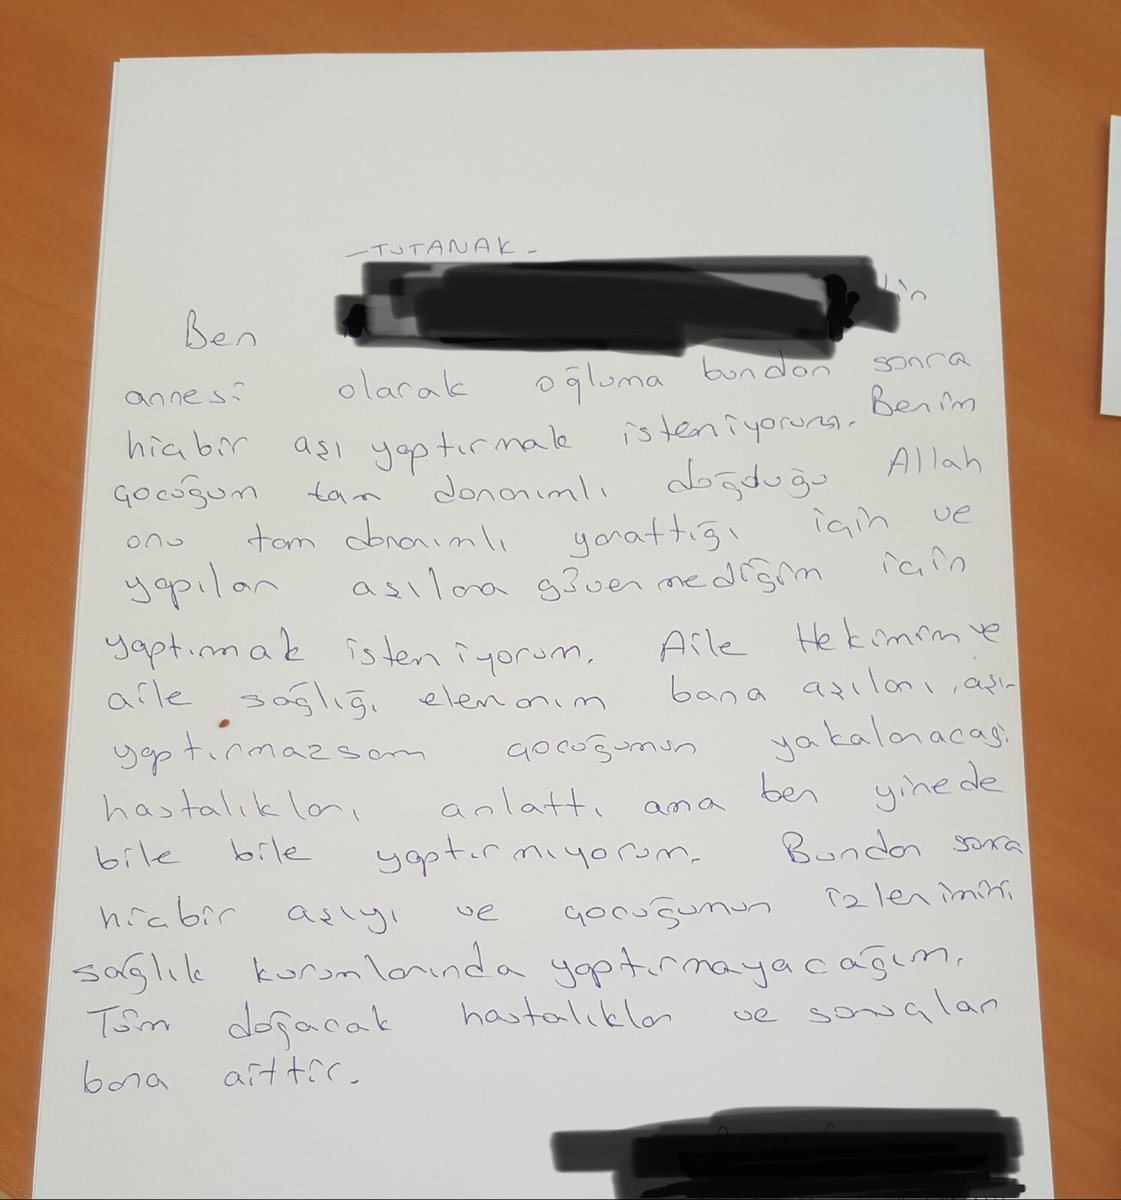 -TUTANAK-
Ben in
annesi olarak oğluma bundan sonra
hiçbir aşı yaptırmak istemiyorum. Benim
çocuğum tam donanımlı doğduğu Allah
onu tam donanımlı yarattığı için ve
yapılan aşılara güvenmediğim için
yaptırmak istemiyorum. Aile Hekimim ve
aile sağlığı elemanım bana aşıları, aşı
yaptırmazsam çocuğumun yakalanacağı
hastalıkları anlattı ama ben yinede
bile bile yaptırmıyorum. Bundan sonra
hiçbir aşıyı ve çocuğumun izlenimini
sağlık kurumlarında yaptırmayacağım.
Tüm doğacak hastalıklar ve sonuçları
bana aittir.